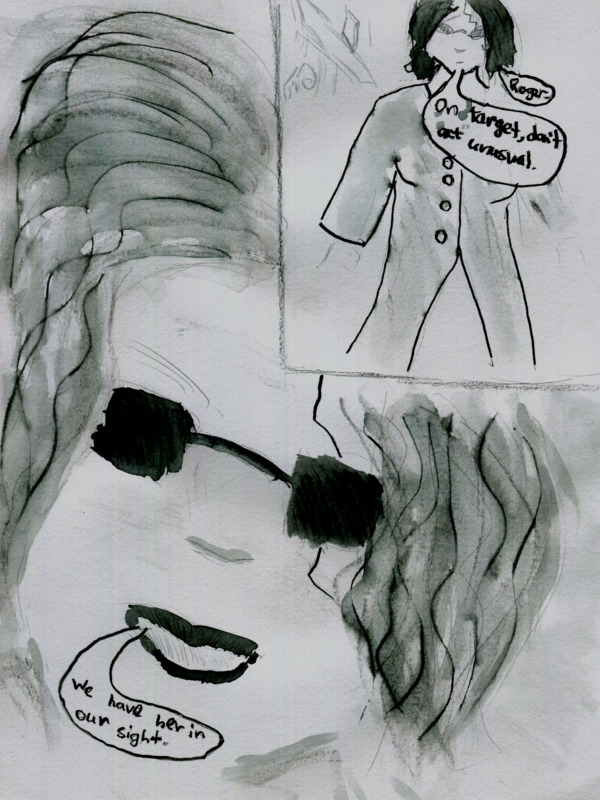 Roger-
On target, don't
act unusual.
We have her in
our sight.